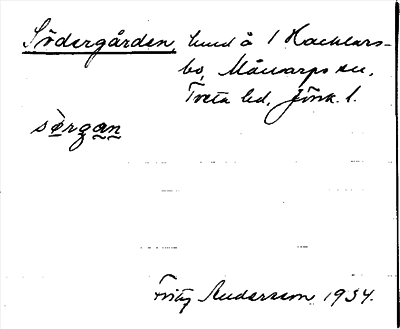 Södergården, hmd å 1 Hacklars-
bo, Månsarps sn,
Tveta hd, Jönk. l.
sørgan
Fritz Andersson 1934.